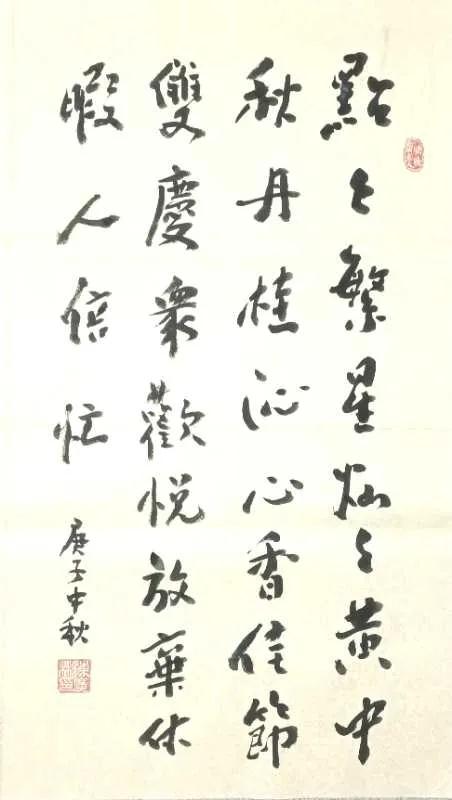 點々繁星灿々黄中
秋丹桂沁心香佳節
雙慶衆歡悦放棄休
暇人倍忙
庚子中秋